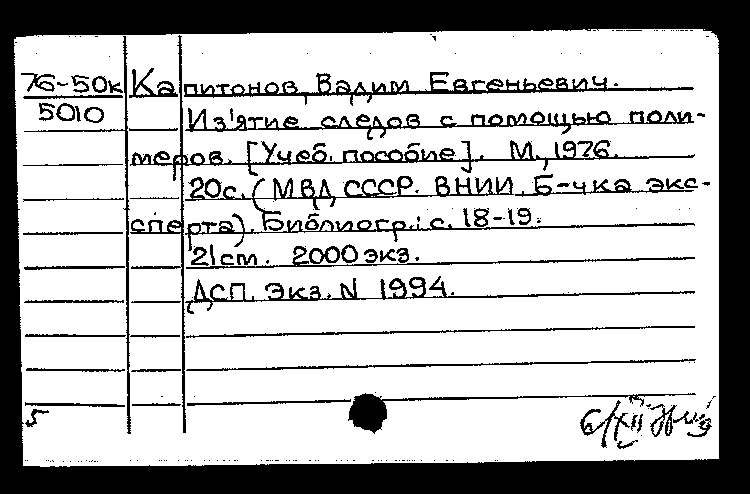 76-50к Капитонов, Вадим Евгеньевич.
5010 Из'ятие следов с помощью поли-
меров. [Учеб. пособие]. М., 1976.
20с. (МВД СССР. ВНИИ. Б-чка экс-
сперта). Библиогр.: с. 18-19.
21 cm. 2000 экз.
ДСП. Экз. N 1994.
5 6/XII